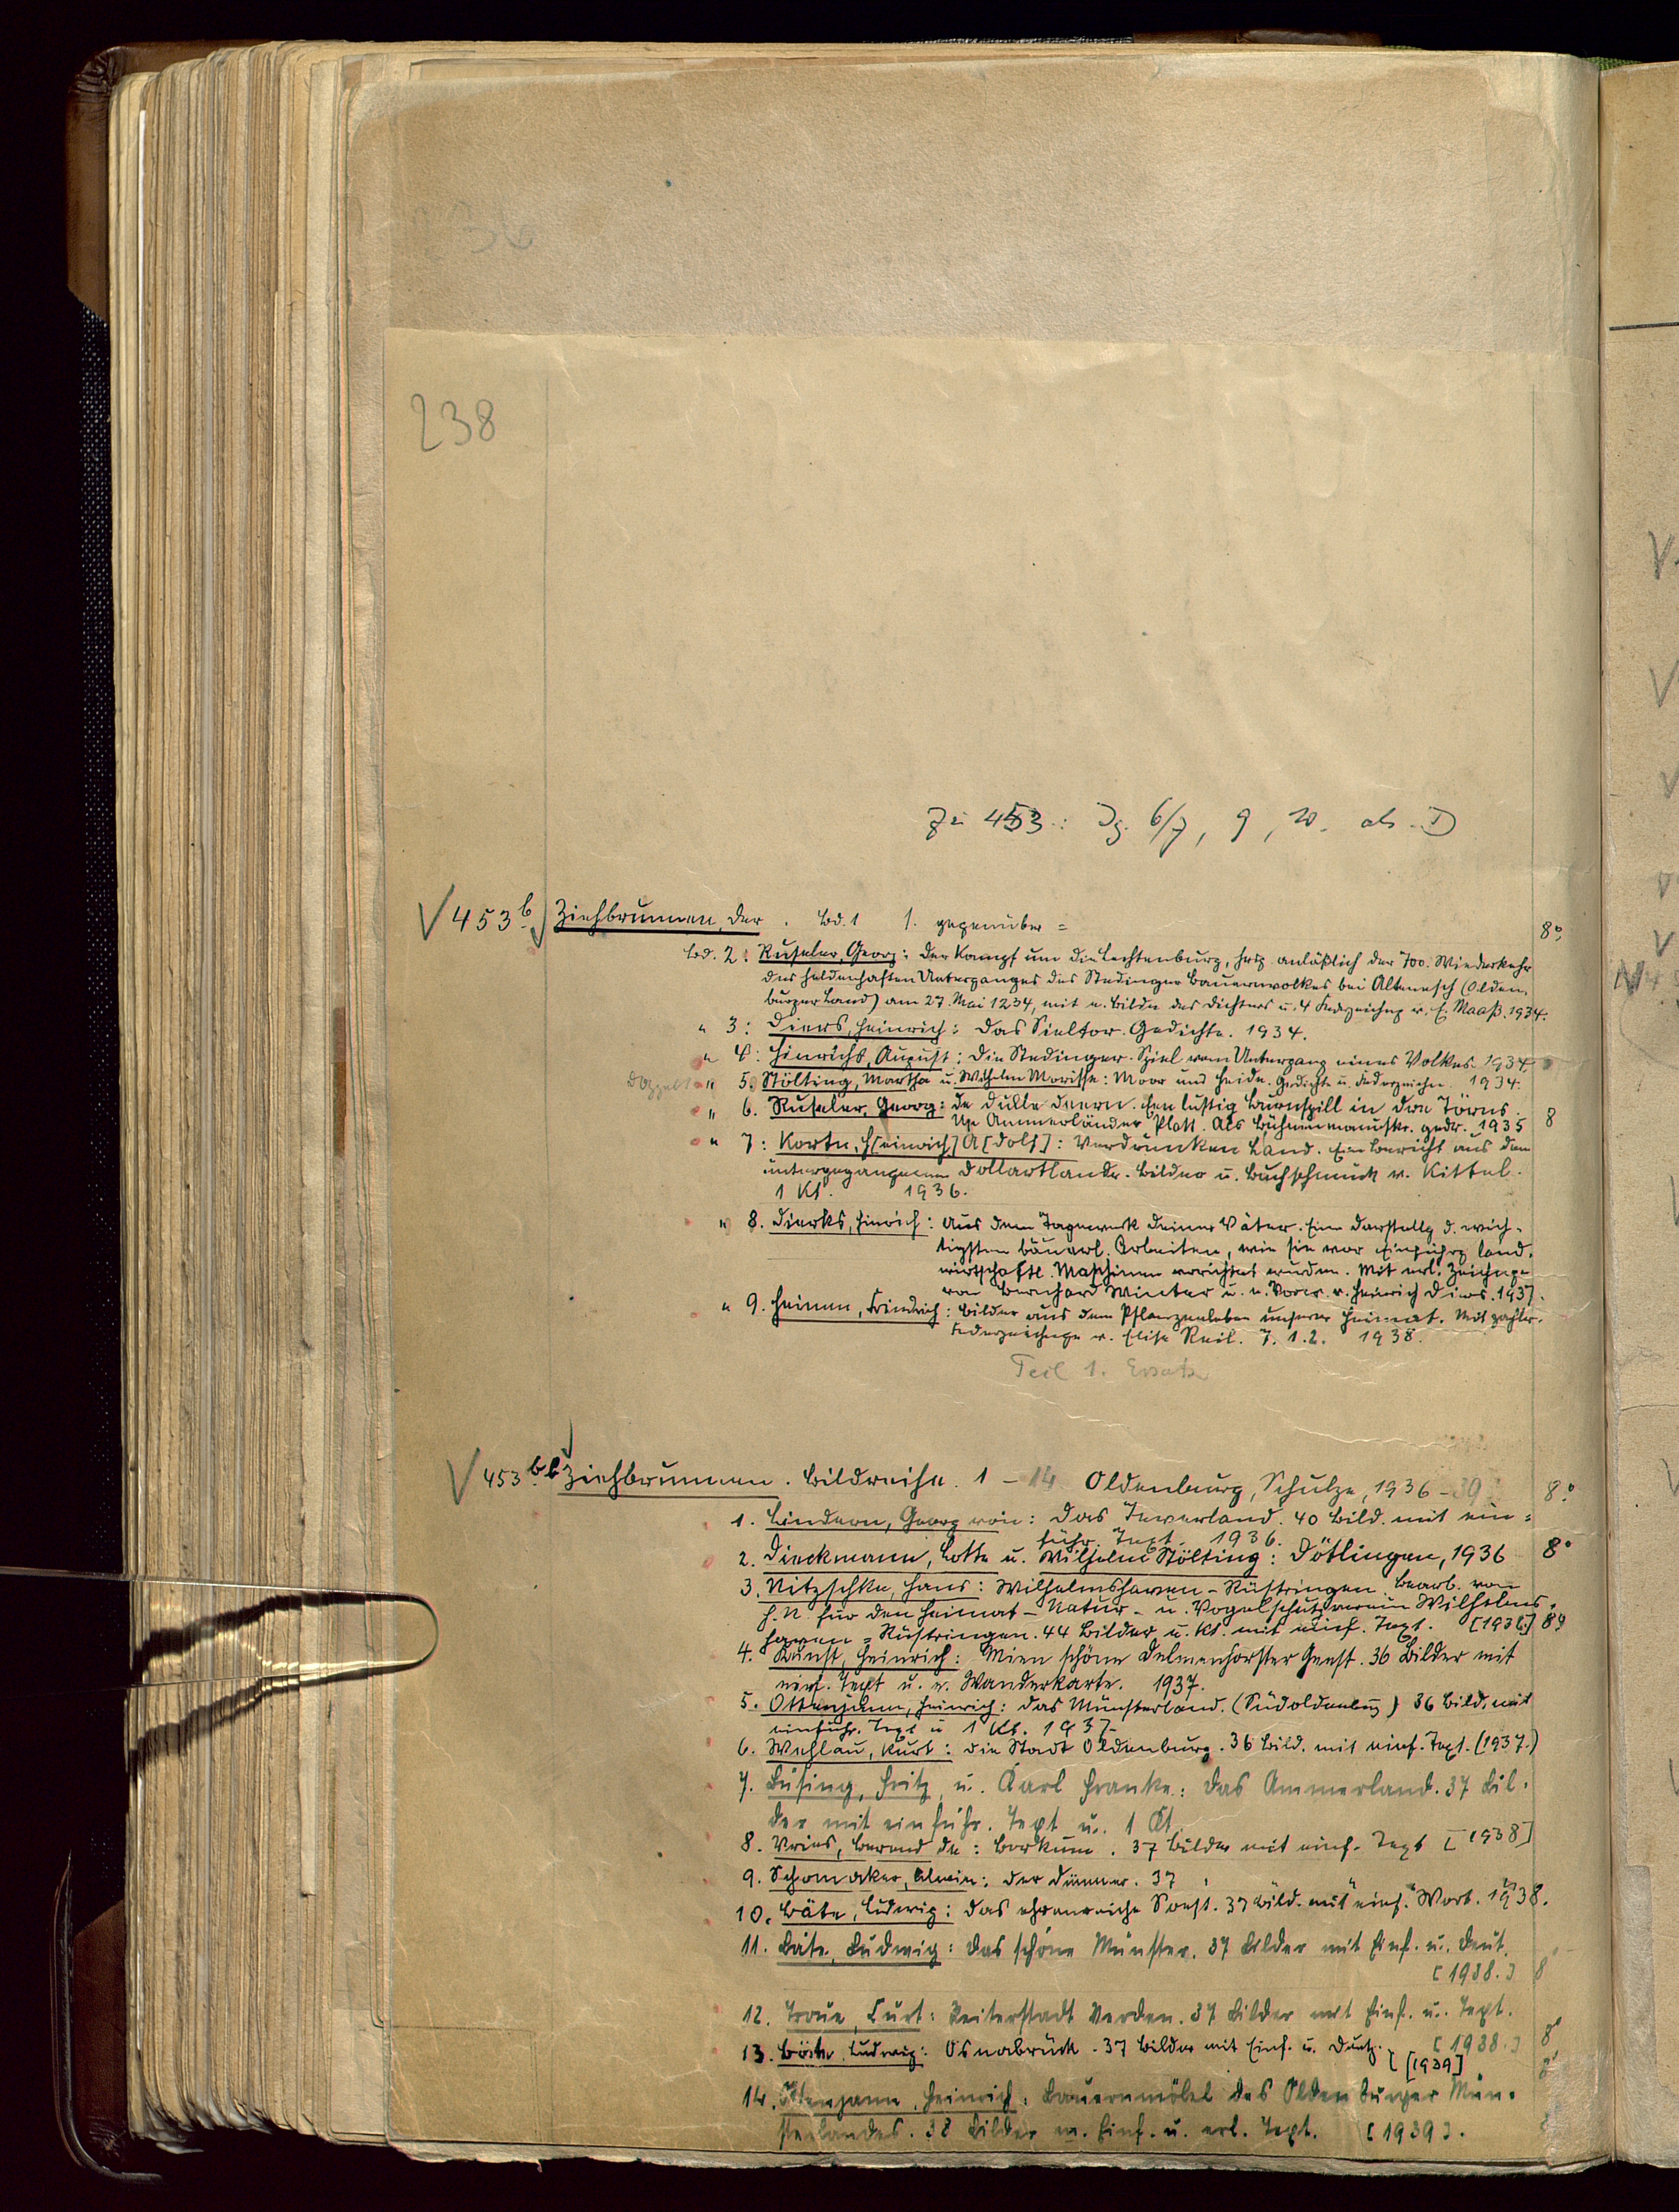 238
Zu 453: Jg. 6/7, 9, 10. als D
453b. Ziehbrunnen, der. Bd. 1 1. gegenüber = 8°,
Bd. 2: Ruseler, Georg: Der Kampf um die Lechtenburg, hrsg. anläßlich der 700. Wiederkehr
des heldenhaften Unterganges des Stedinger Bauernvolkes bei Altenesch (Olden-
burger Land) am 27. Mai 1234, mit e. Bilde des Dichters u. 4 Federzeichng v. E. Maaß. 1934.
" 3: Diers, Heinrich: Das Sieltor. Gedichte. 1934.
" 4: Hinrichs, August: Die Stedinger. Spiel vom Untergang eines Volkes. 1934
doppelt " 5. Stölting, Martha u. Wilhelm Morisse: Moor und Heide. Gedichte u. Federzeichn. 1934.
" 6. Ruseler, Georg: De dulle Deern. Een lustig Burnspill in dree Törns.
Up Ammerländer Platt. Als Bühnenmanuskr. gedr. 1935 8
" 7: Korte, H[einrich] A[dolf]: Verdrunken Land. Ein Bericht aus dem
untergegangenen Dollartlande. Bilder u. Buchschmuck v. Kittel.
1 Kt. 1936.
" 8. Dierks, Hinrich: Aus dem Tagewerk deiner Väter. Eine Darstellg d. wich-
tigsten bäuerl. Arbeiten, wie sie vor Einführg land-
wirtschaftl. Maschinen verrichtet wurden. Mit erl. Zeichnge
von Bernhard Winter u. e. Vorw. v. Heinrich Diers. 1937.
" 9. Heinen, Friedrich: Bilder aus dem Pflanzenleben unserer Heimat. Mit zahlr.
Federzeichnge v. Elise Reil. T. 1.2. 1938.
Teil 1. Ersatz
453bb Ziehbrunnen. Bildreihe. 1 - 14 Oldenburg, Schulze, 1936-39 8°
1. Lindern, Georg von: Das Jeverland. 40 Bild. mit ein-
führ. Text. 1936.
2. Dieckmann, Lotte u. Wilhelm Stölting: Dötlingen, 1936 8°
3. Nitzschke, Hans: Wilhelmshaven - Rüstringen. Bearb. von
H. N. für den Heimat- Natur- u. Vogelschutzverein Wilhelms-
haven = Rüstringen. 44 Bilder u. Kt. mit einf. Text. [1936] 8°
4. Kunst, Heinrich: Mien schöne Delmenhorster Geest. 36 Bilder mit
einf. Text u. e. Wanderkarte. 1937.
5. Ottenjann, Heinrich: Das Münsterland. (Südoldenburg) 36 Bild. mit
einführ. Text u 1 Kt. 1937
6. Wehlau, Kurt: Die Stadt Oldenburg. 36 Bild. mit einf. Text. (1937.)
7. Büsing, Fritz u. Karl Franke: Das Ammerland. 37 Bil-
der mit einführ. Text u. 1 Kt.
8. Vries, Berend de: Borkum. 37 Bilder mit einf. Text [1938]
9. Schomaker, Alwin: Der Dümmer. 37 " " " "
10. Bäte, Ludwig: Das ehrenreiche Soest. 37 Bild. mit einf. Wort. 1938.
11. Bäte, Ludwig: Das schöne Münster. 37 Bilder mit Einf. u. Deut.
[1938.] 8
12. Traue, Curt: Reiterstadt Verden. 37 Bilder mit Einf. u. Text.
[1938.] 8°
13. Bäte, Ludwig: Osnabrück. 37 Bilder mit Einf. u. Deutg.
[1939] 8°
14. Ottenjann, Heinrich: Bauernmöbel des Oldenburger Mün-
sterlandes. 38 Bilder m. Einf. u. erl. Text. [1939].